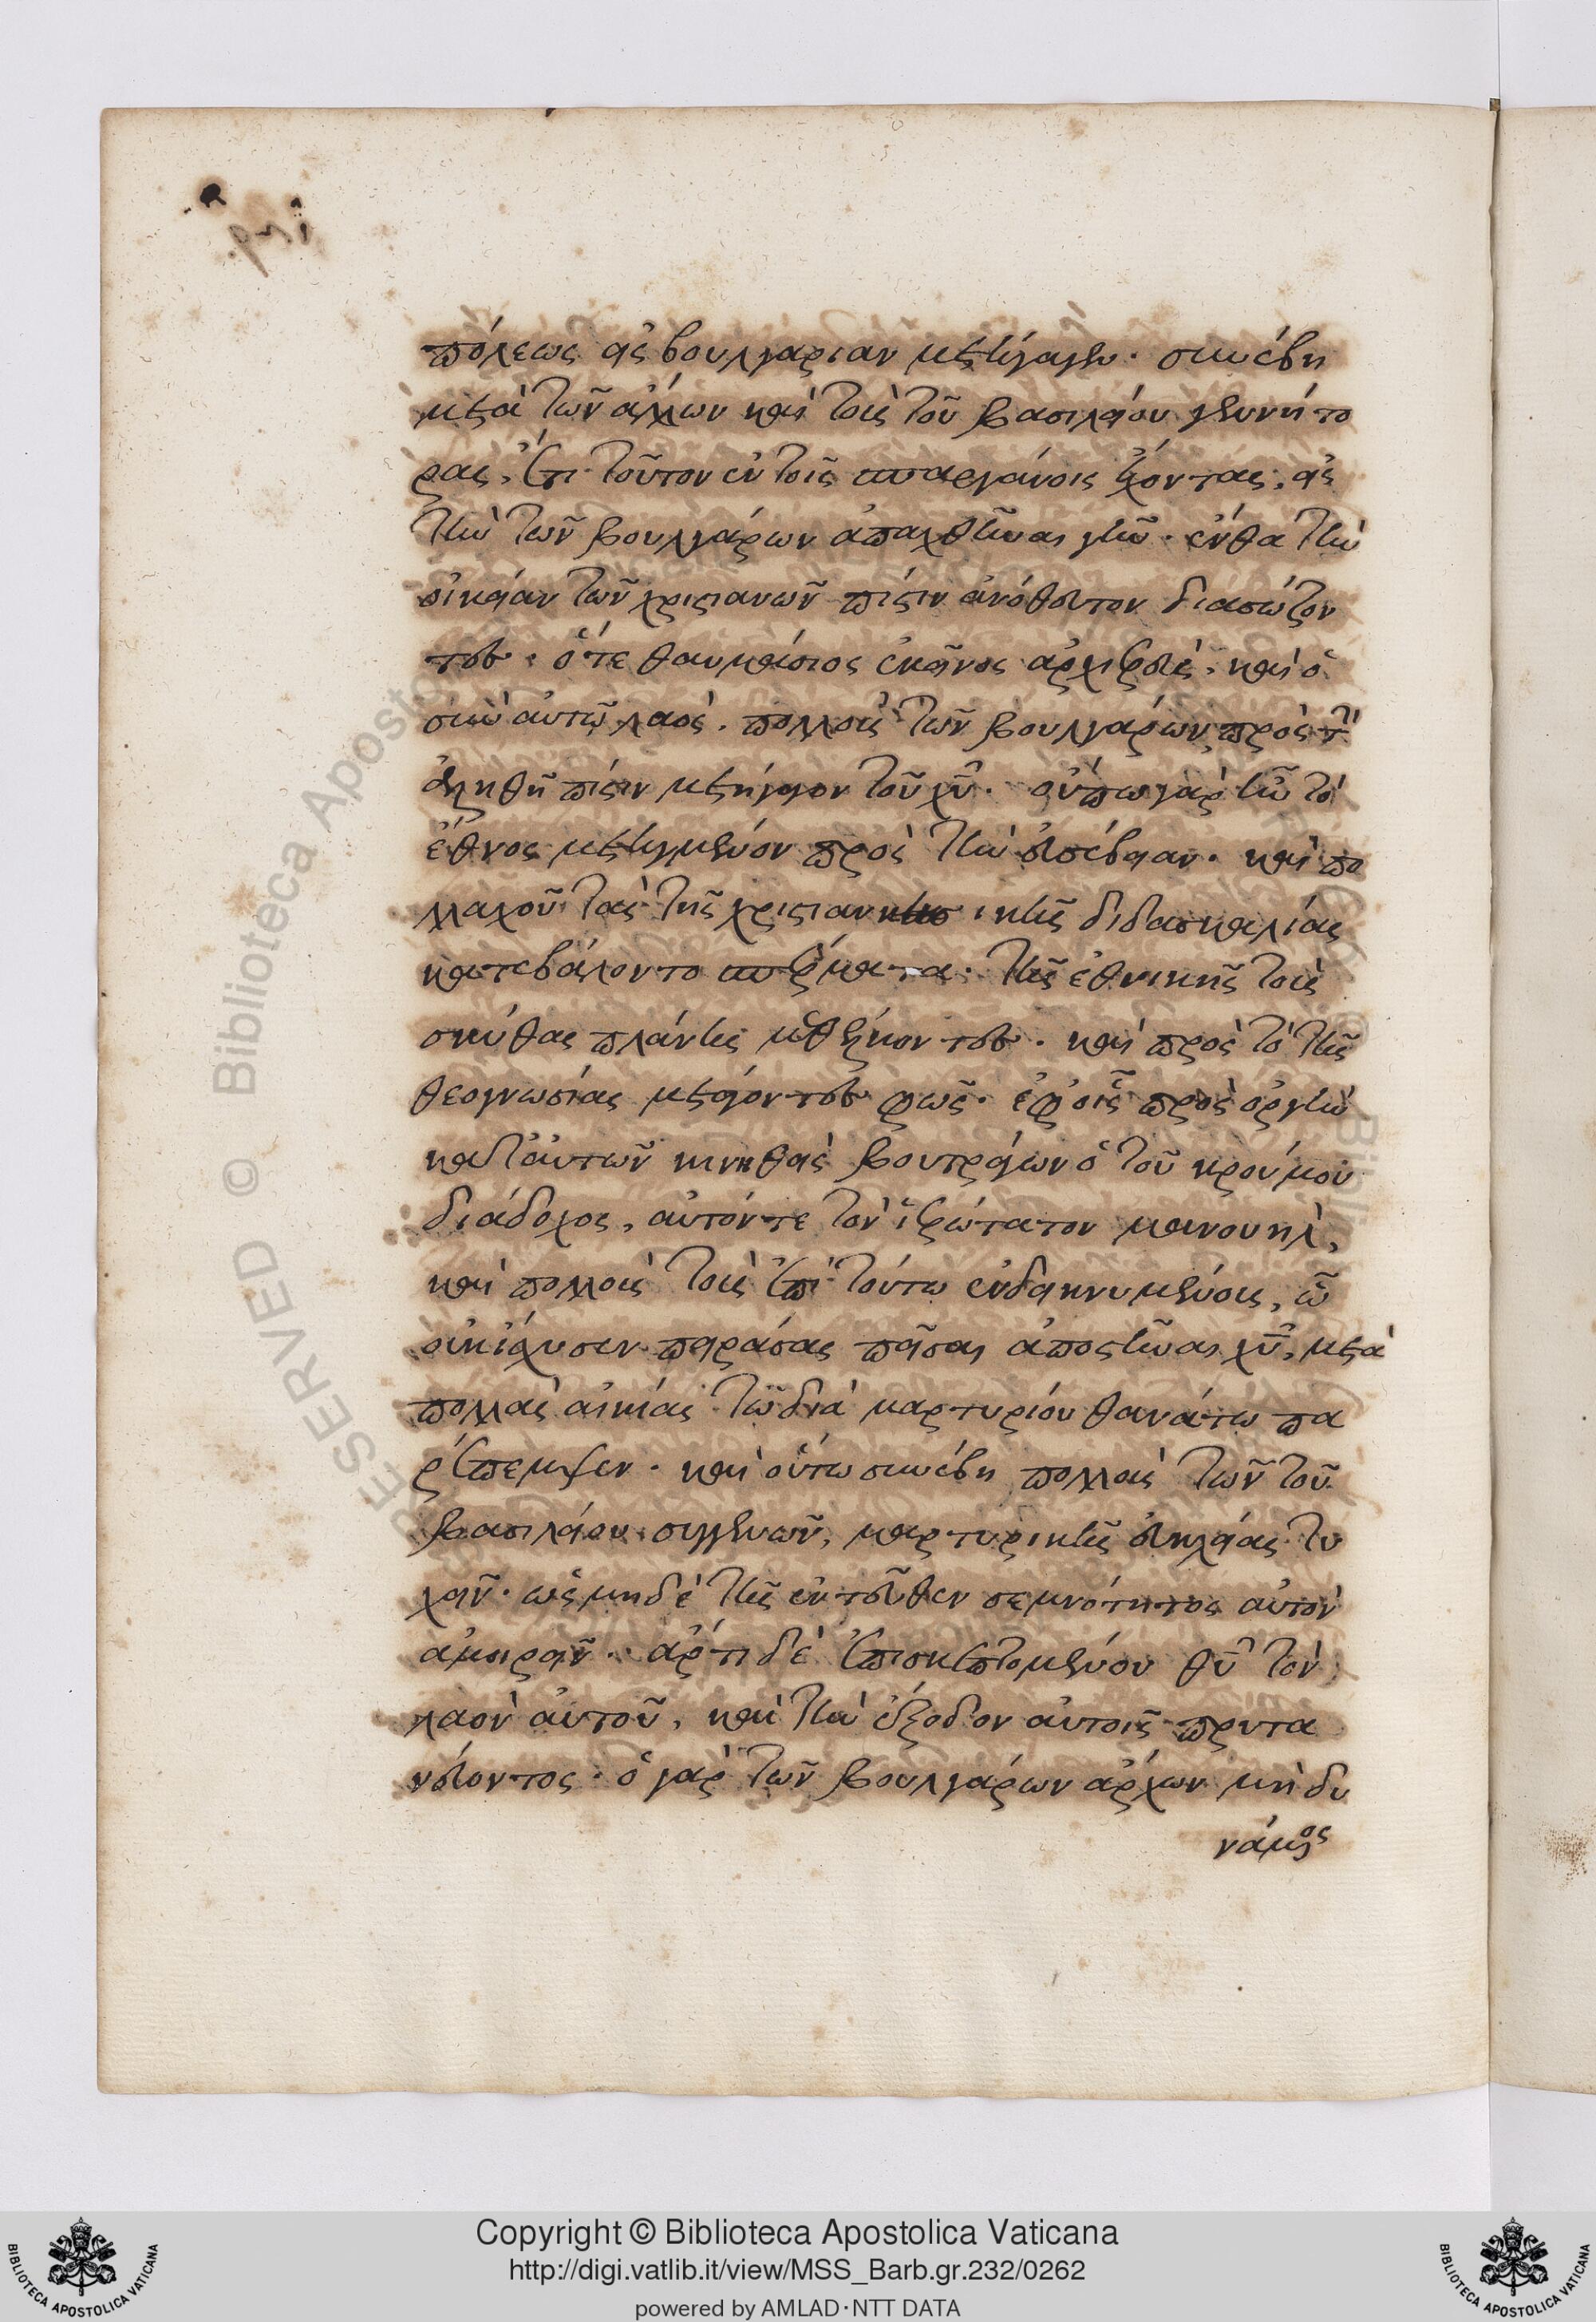 πόλεως εἰς βουλγαρίαν μετήγαγεν. συνέβη
μετὰ τῶν ἄλλων καὶ τοὺς τοῦ βασιλείου γεννήτο
ρας, ἔτι τοῦτον ἐν τοῖς σπαργάνοις ἔχοντας, εἰς
τὴν τῶν βουλγάρων ἀπαχθῆναι γῆν. ἔνθα τὴν
οἰκείαν τῶν χριστιανῶν πίστιν ἀνόθευτον διασώζον
τες. ὅ τε θαυμάσιος ἐκεῖνος ἀρχιερεὺς, καὶ ὁ
σὺν αὐτῷ λαὸς. πολλοὺς τῶν βουλγάρων πρὸς τὴν
ἀληθῆ πίστιν μετήγαγον τοῦ χῦ. οὔπω γὰρ ἦν τὸ
ἔθνος μετηγμένον πρὸς τὴν εὐσέβειαν. καὶ πο
λλαχοῦ τὰς τῆς χριστιανικῆς διδασκαλίας
κατεβάλοντο σπέρματα. τῆς ἐθνικῆς τοὺς
σκύθας πλάνης μεθέλκοντες. καὶ πρὸς τὸ τῆς
θεογνωσίας μετάγοντες φῶς. ἐφ' οἷς πρὸς ὀργὴν
κατ' αὐτῶν κινηθεὶς βουτράγων ὁ τοῦ κρούμου
διάδοχος, αὐτόν τε τὸν ἱερώτατον μανουηλ,
καὶ πολλοὺς τοὺς ἐπὶ τούτω ἐνδεικνυμένους, ὡς
οὐκ ἴσχυσεν πειράσας πεῖσαι ἀποστῆναι χῦ, μετὰ
πολλὰς αἰκίας τῶ διὰ μαρτυρίου θανάτω πα
ρέπεμψεν. καὶ οὕτω συνέβη πολλοὺς τῶν τοῦ
βασιλείου συγγενῶν, μαρτυρικῆς εὐκλείας τυ
χεῖν. ὡς μηδὲ τῆς ἐντεῦθεν σεμνότητος αὐτὸν
ἀμοιρεῖν. ἄρτι δὲ ἐπισκεπτομένου θῦ τὸν
λαὸν αὐτοῦ, καὶ τὴν ἔξοδον αὐτοῖς πρυτα
νεύοντος. ὁ γὰρ τῶν βουλγάρων ἄρχων μὴ δυ
νάμενος
Copyright © Biblioteca Apostolica Vaticana
http://digi.vatlib.it/view/MSS_Barb.gr.232/0262
powered by AMLAD·NTT DATA
BIBLIOTECA APOSTOLICA VATICANA
BIBLIOTECA APOSTOLICA VATICANA